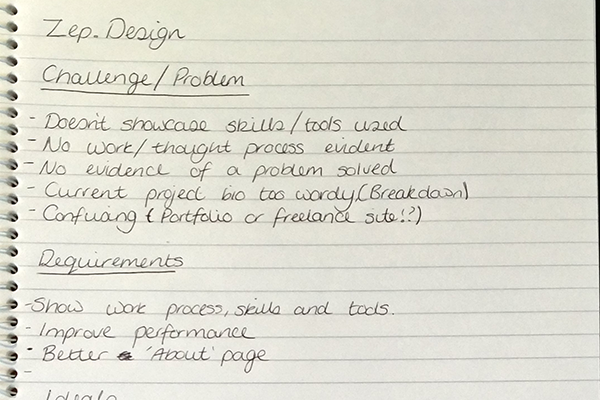 Zep. Design
Challenge/Problem
- Doesn't showcase skills/tools used
- No work/thought process evident
- No evidence of a problem solved
- Current project bio too wordy (Breakdown)
- Confusing (Portfolio or freelance site!?)
Requirements
- Show work process, skills and tools.
- Improve performance
- Better 'About' page
-